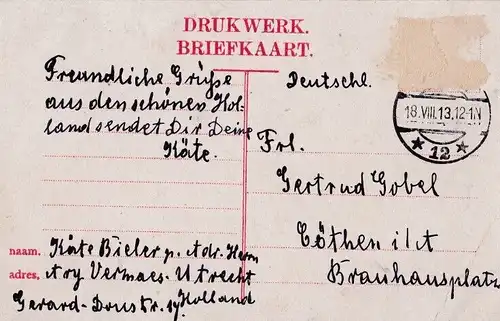 DRUKWERK.
BRIEFKAART.
Freundliche Grüße
aus den schönen Hol-
land sendet Dir Deine
Käte.
Deutschl.
18.VIII.13.12-1N
12
Frl.
Gertrud Gobel
Cöthen i/A
Brauhausplatz
naam. Käte Bieler p. Adr. Herrn
adres. Ary Vermaes-Utrecht
Gerard-Doustr. Holland